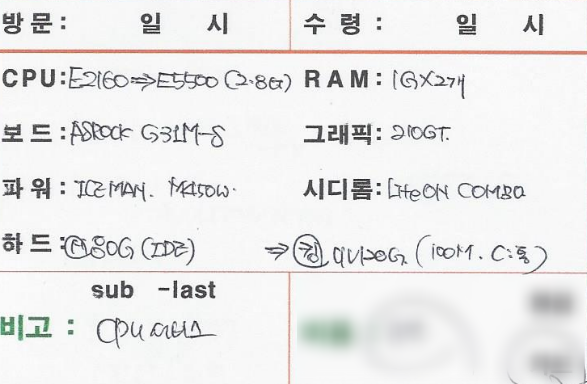 방문 : 일 시 수령 : 일 시
CPU : E2160⇒E5500 (2.8G) RAM : 1GX2개
보드 : ASROCK G31M-S 그래픽 : 210GT.
파워 : ICEMAN. 시디롬 : LiteON COMBO
하드 : 80G (IDE) ⇒ (100M. C:통)
sub -last
비고 : CPU 서비스